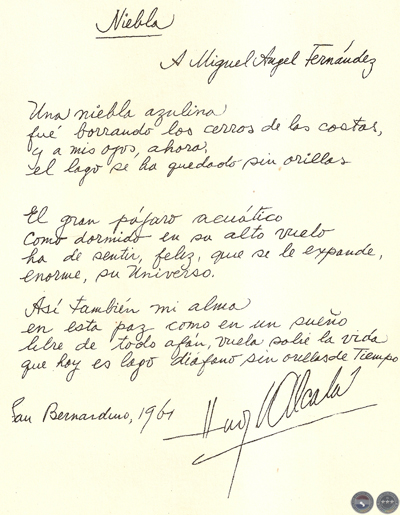 Niebla
A Miguel Angel Fernández
Una niebla azulina
fué borrando los cerros de las costas,
y a mis ojos, ahora,
el lago se ha quedado sin orillas
El gran pájaro acuático
como dormido en su alto vuelo
ha de sentir, feliz, que se le expande,
enorme, su Universo.
Así también mi alma
en esta paz como en un sueño
libre de todo afán, vuela sobre la vida
que hoy es lago diáfano sin orillas de Tiempo
San Bernardino, 1961
Hugo R Alcalá